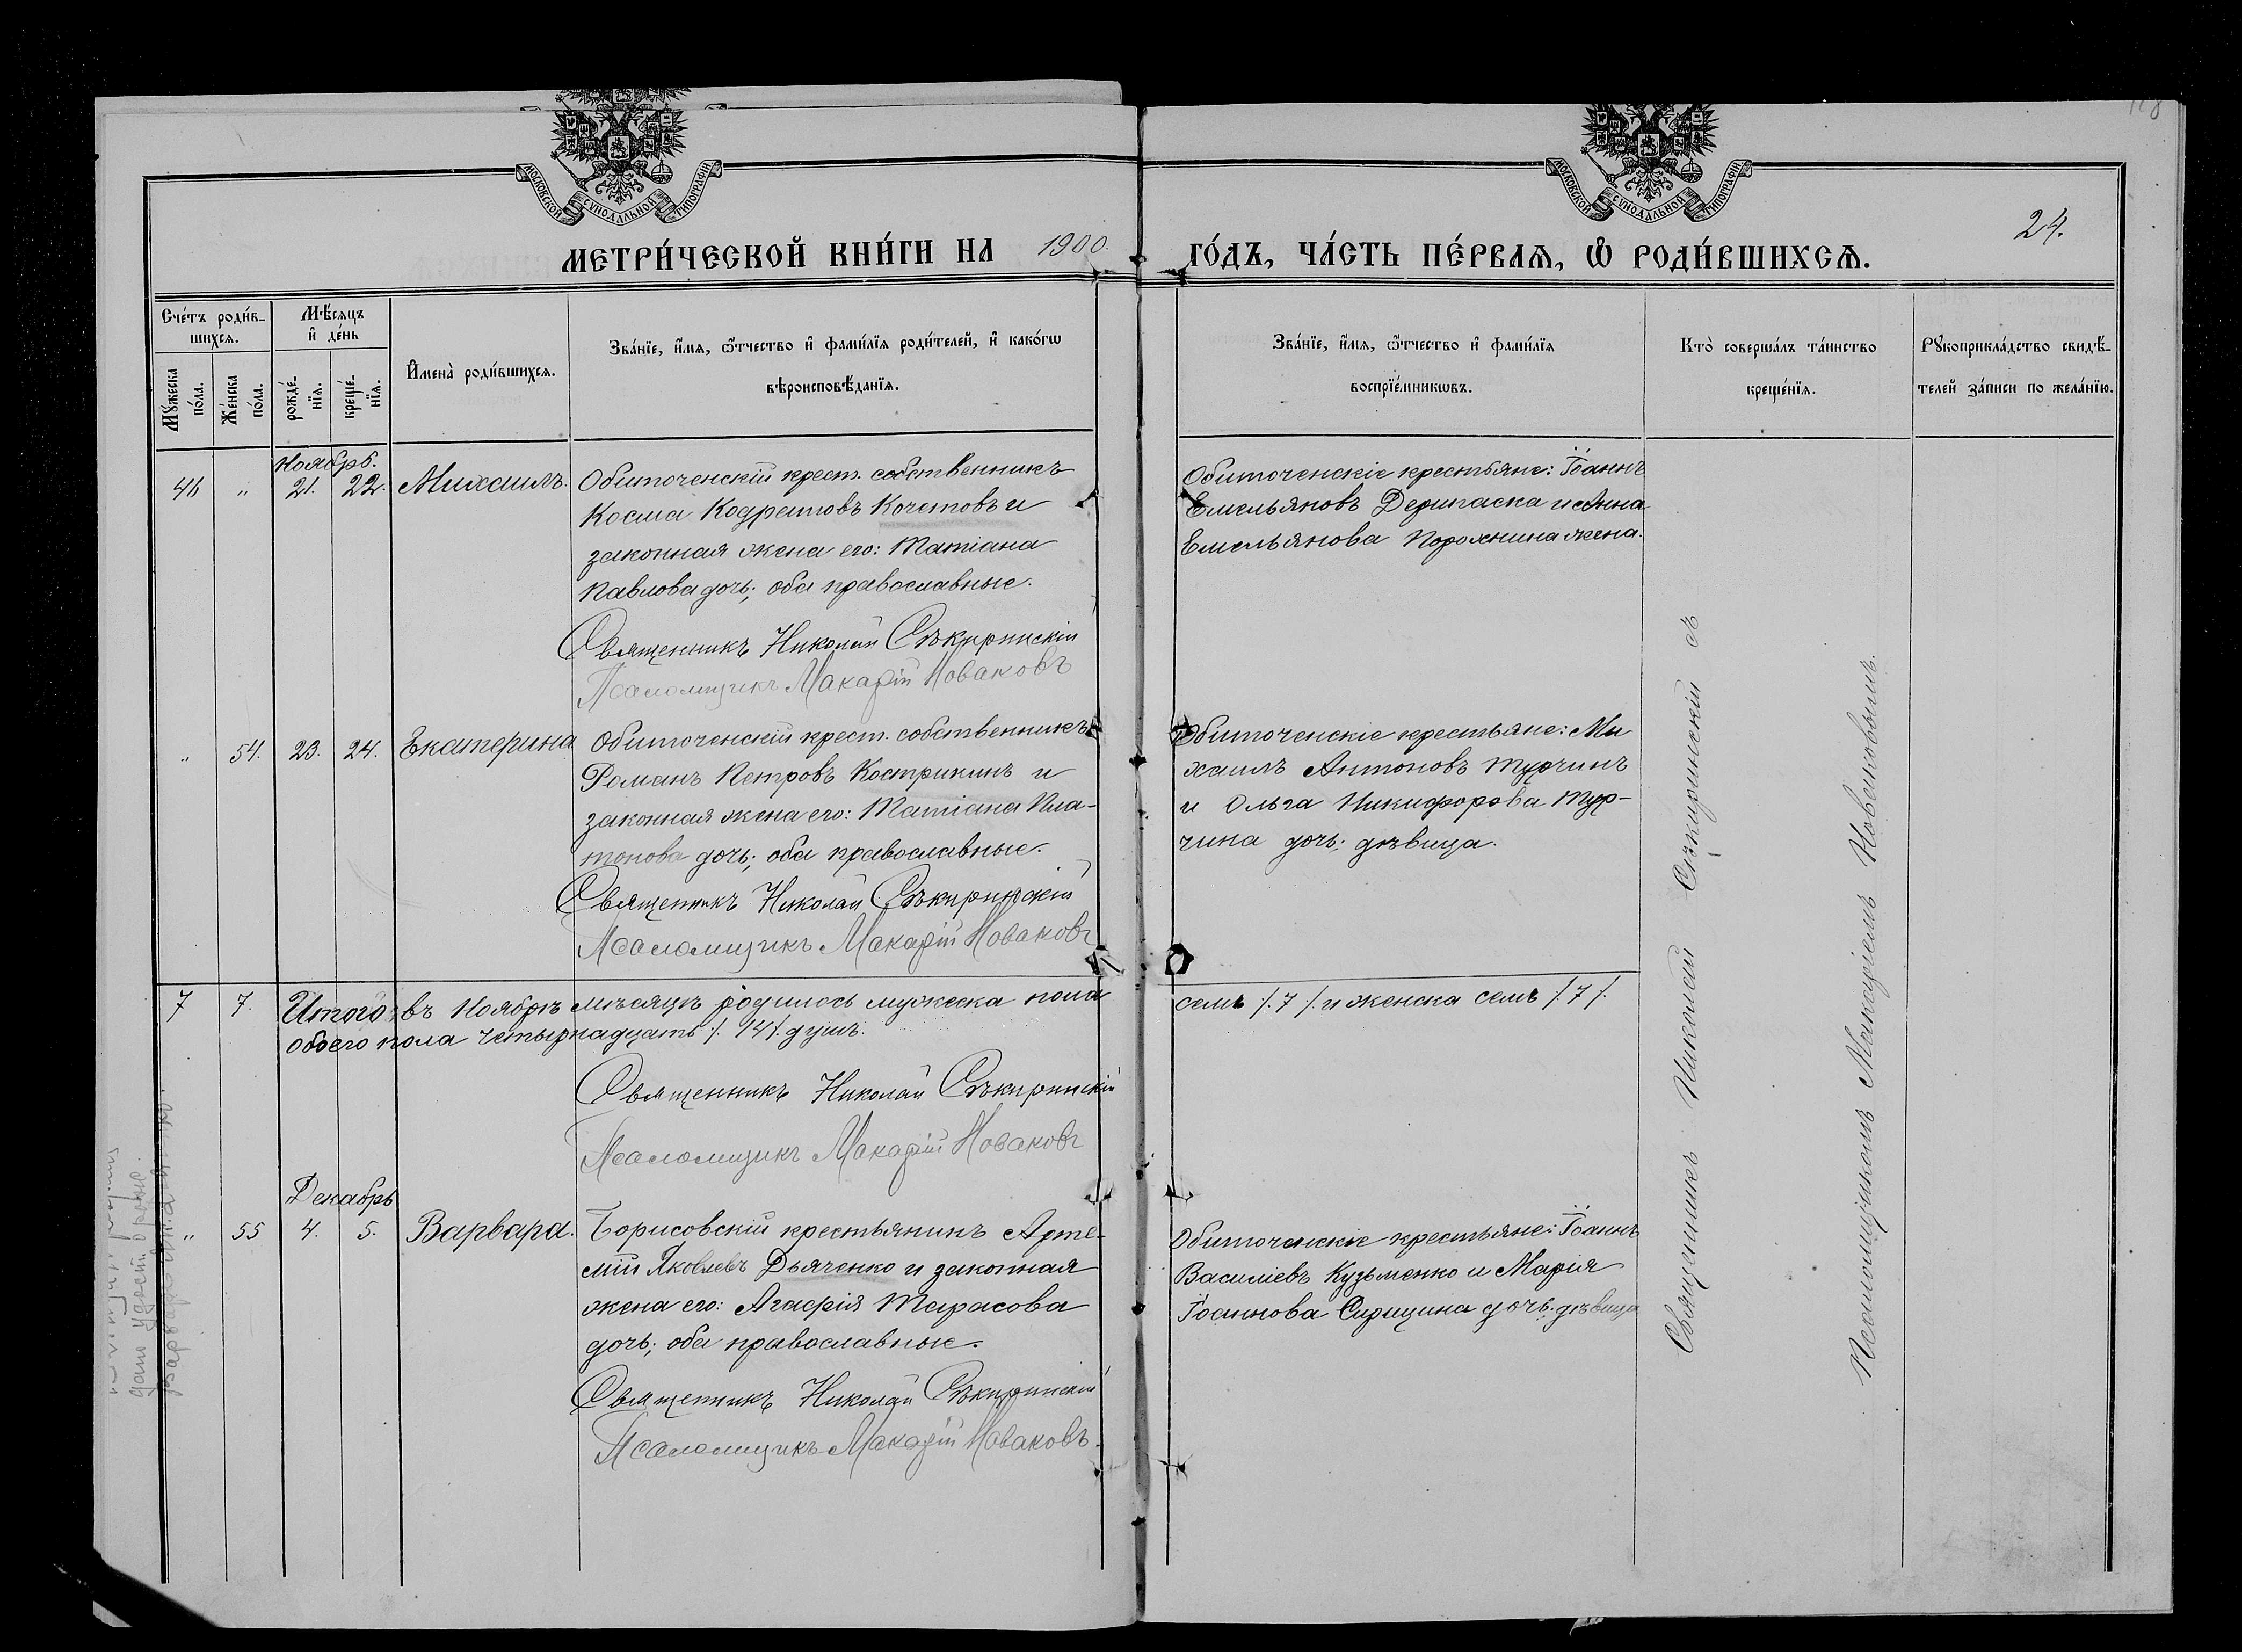 МОСКОВСКОЙ СѴНОДАЛЬНОЙ ТИПОГРАФІИ
МОСКОВСКОЙ СѴНОДАЛЬНОЙ ТИПОГРАФІИ
24.
МЕТРИ́ЧЕСКОЙ КНИ́ГИ НА 1900. ГО́ДЪ, ЧА́СТЬ ПЕ́РВАѦ, Ѡ҆ РОДИ́ВШИХСѦ.
Сче́тъ роди́в-
шихсѧ.
Мꙋ́жеска по́ла.
Же́нска по́ла.
Мѣ́сѧцъ
и҆ де́нь
рожде́-
нїѧ.
креще́-
нїѧ.
И҆мена̀ роди́вшихсѧ.
Зва́нїе, и҆́мѧ, ѻ҆́тчество и҆ фами́лїѧ роди́телей, и҆ како́гѡ
вѣроисповѣ́данїѧ.
Зва́нїе, и҆́мѧ, ѻ҆́тчество и҆ фами́лїѧ
воспрїе́мникѡвъ.
Кто̀ соверша́лъ та́инство
креще́нїѧ.
Рꙋкоприкла́дство свидѣ́-
телей за́писи по жела́нїю.
Ноябрь.
46 " 21. 22. Михаилъ.
Обиточенскій крест. собственникъ
Косма Кодратовъ Кочетовъ и
законная жена его: Татіана
Павлова дочь; оба православные.
Священникъ Николай Сѣкиринскій
Псаломщикъ Макарій Новаковъ
Обиточенскіе крестьяне: Іоаннъ
Емельяновъ Дерипаска и Анна
Емельянова Порохнина жена.
" 54. 23. 24. Екатерина
Обиточенскій крест. собственникъ
Романъ Петровъ Кострикинъ и
законная жена его: Татіана Пла-
тонова дочь; оба православные.
Священникъ Николай Сѣкиринскій
Псаломщикъ Макарій Новаковъ
Обиточенскіе крестьяне: Ми
хаилъ Антоновъ Турчинъ
и Ольга Никифорова Тур-
чина дочь; дѣвица.
7 7. Итого въ Ноябрѣ мѣсяцѣ родилось мужеска пола семь /.7./ и женска семь /.7./.
обоего пола четырнадцать /.14./ душъ.
Священникъ Николай Сѣкиринскій
Псаломщикъ Макарій Новаковъ
Декабрь
" 55 4. 5. Варвара.
Борисовскій крестьянинъ Арте-
мій Яковлевъ Дьяченко и законная
жена его: Агафія Тарасова
дочь; оба православные.
Священникъ Николай Сѣкиринскій
Псаломщикъ Макарій Новаковъ.
Обиточенскіе крестьяне: Іоаннъ
Василіевъ Кузьменко и Марія
Іоаннова Сирицина дочь; дѣвица
Священникъ Николай Сѣкиринскій съ
Псаломщикомъ Макаріемъ Новаковымъ.